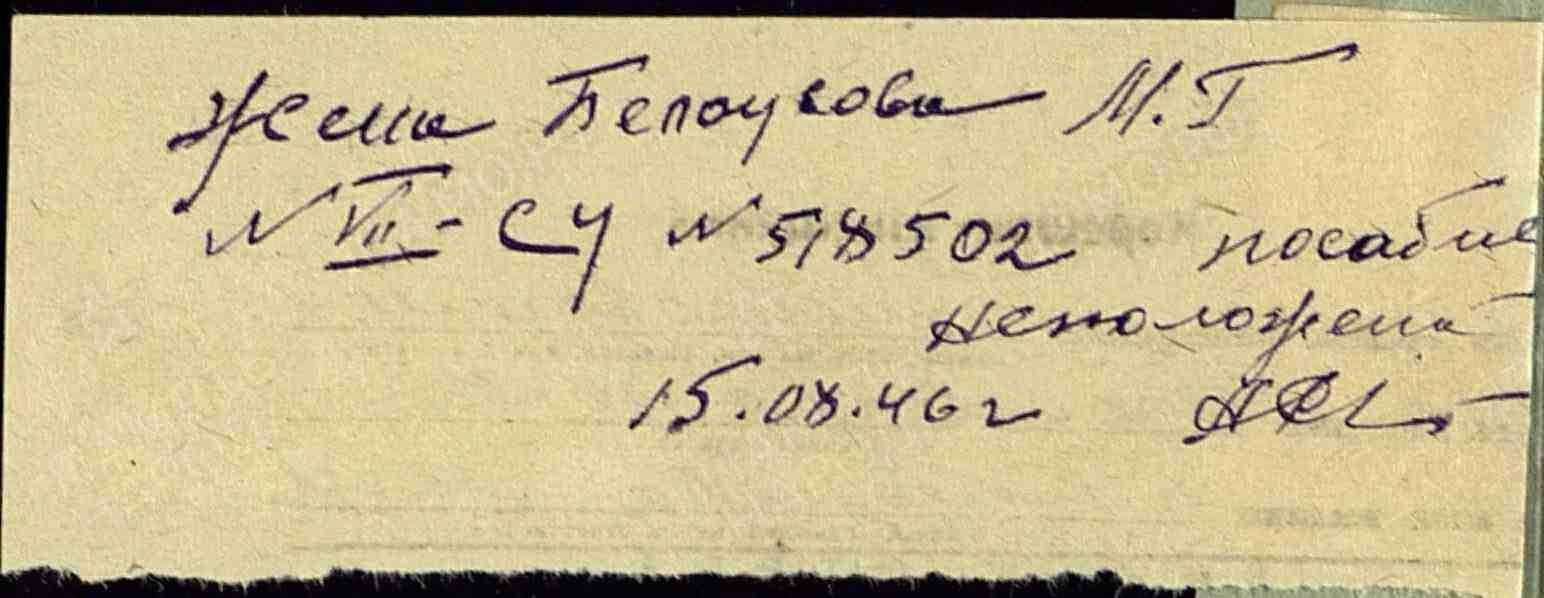 Жена Белоусова М.Г
N VII - СУ N 518502 пособие
неположена
15.08.46 г